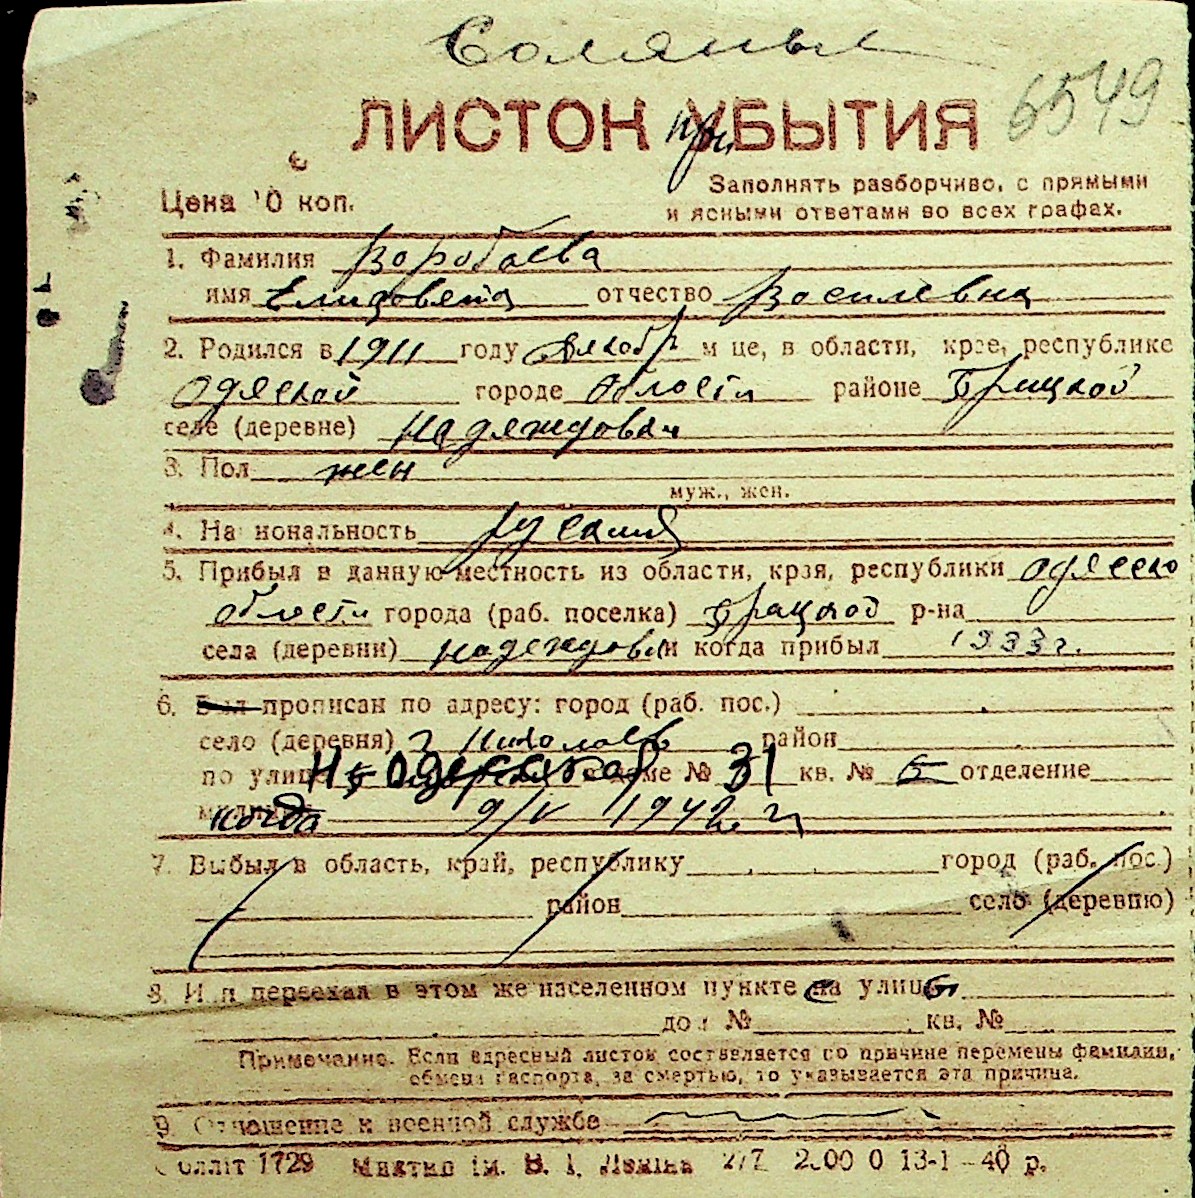 Соляные
ЛИСТОК УБЫТИЯ 6549
при
Цена 10 коп.
Заполнять разборчиво, с прямыми
и ясными ответами во всех графах.
1. Фамилия Воробьева
имя Елизовета отчество Василевна
2. Родился в 1911 году Дякобр м це, в области, крае, республике
одяской городе области районе Брицкой
селе (деревне) Надяждовки
3. Пол жен
муж., жен.
4. На иональность руская
5. Прибыл в данную местность из области, края, республики одяско
области города (раб. поселка) Брацкой р-на
села (деревни) надеждовки когда прибыл 1933 г.
6. Был прописан по адресу: город (раб. пос.)
село (деревня) г Николаев район
по улице Н, Одесская доме № 31 кв. № 5 отделение
когда 9/V 1942 г.
7. Выбыл в область, край, республику город (раб. пос.)
район село (деревню)
8. И п переехал в этом же населенном пункте с улицы
дом № кв. №
Примечание. Если адресный листок составляется по причине перемены фамилии,
обмена паспорта, за смертью, то указывается эта причина.
9. Отношение к военной службе
облліт 1729 Миктип ім. В. І. Леніна 2/7 2000 0 13-1-40 р.